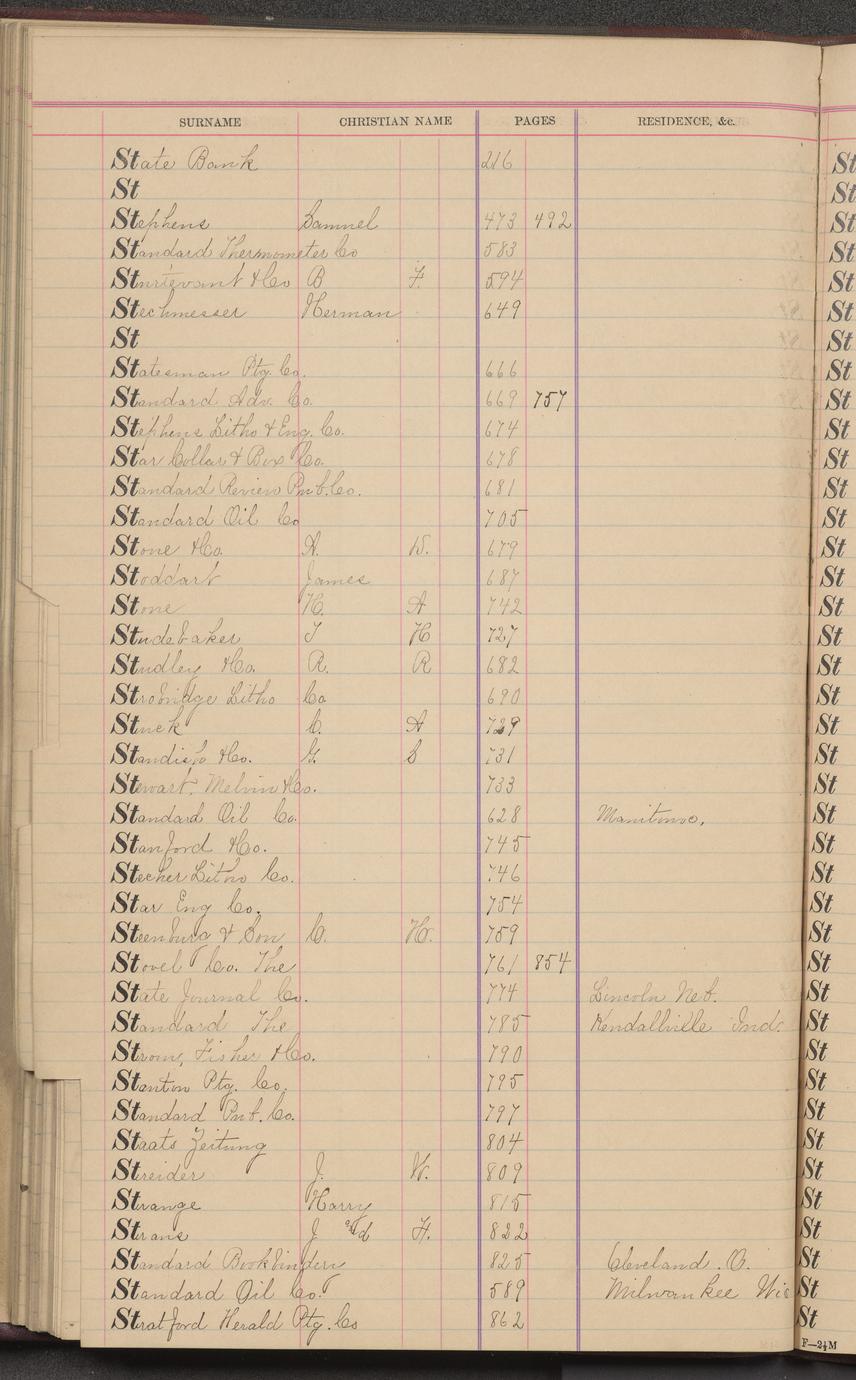 SURNAME CHRISTIAN NAME PAGES RESIDENCE, &c.
State Bank 216
St
Stephens Samuel 473 492
Standard Thermometer Co 583
Sturtevant & Co B F 594
Stechmesser Herman 649
St
Statesman Ptg. Co. 666
Standard Adv. Co. 669 757
Stephens Litho & Eng. Co. 674
Star Collar & Box Co. 678
Standard Review Pub. Co. 681
Standard Oil Co 705
Stone & Co. A. D. 679
Stoddart James 687
Stone H. A 742
Studebaker J H 727
Studley & Co. R. R 682
Strobridge Litho Co 690
Stuck C. A 729
Standish & Co. G. S 731
Stewart, Melvin & Co. 733
Standard Oil Co. 628 Manitowoc,
Stanford & Co. 745
Stecher Litho Co. 746
Star Eng Co. 754
Steenburg & Son C. H. 759
Stovel Co. The 761 854
State Journal Co. 774 Lincoln Neb.
Standard The 785 Kendallville Ind.
Strom, Fisher & Co. 790
Stanton Ptg. Co. 795
Standard Pub. Co. 797
Staats Zeitung 804
Streider J. W. 809
Strange Harry 815
Straus J H. 822
Standard Bookbindery 825 Cleveland. O.
Standard Oil Co. 589 Milwaukee Wis
Stratford Herald Ptg. Co 862
St
St
St
St
St
St
St
St
St
St
St
St
St
St
St
St
St
St
St
St
St
St
St
St
St
St
St
St
St
St
St
St
St
St
St
St
St
St
St
St
F—2½M